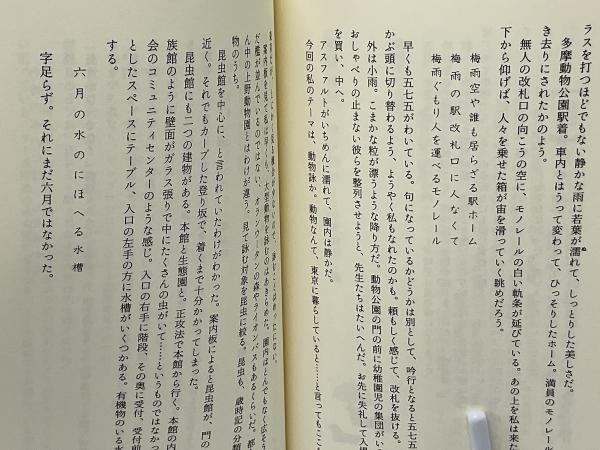 ラスを打つほどでもない静かな雨に若葉が濡れて、しっとりした美しさだ。
多摩動物公園駅着。車内とはうって変わって、ひっそりしたホーム。満員のモノレール
き去りにされたかのよう。
無人の改札口の向こうの空に、モノレールの白い軌条が延びている。あの上を私は来た
下から仰げば、人々を乗せた箱が宙を滑っていく眺めだろう。
梅雨空や誰も居らざる駅ホーム
梅雨の駅改札口に人なくて
梅雨ぐもり人を運べるモノレール
早くも五七五がわいている。句になっているかどうかは別として、吟行となると五七五
かぶ頭に切り替わるよう、ようやく私もなれたのかも。頼もしく感じて、改札を抜ける。
外は小雨。こまかな粒が漂うような降り方だ。動物公園の門の前に幼稚園児の集団がい
おしゃべりの止まない彼らを整列させようと、先生たちはたいへんだ。お先に失礼して入場
を買い、中へ。
アスファルトがいちめんに濡れて、園内は静かだ。
今回の私のテーマは、動物詠か。動物なんて、東京に暮らしていると……と言ってもここも
案内板を見て私は早々に、大型動物を詠むのはあきらめた。園内はとんでもなく広そう
だ。檻が並んでいるのではない、オランウータンの森やライオンバスもあるくらいだ。都
ん中の上野動物園とはわけが違う。見て詠む対象を昆虫に絞る。昆虫も、歳時記の分類
物のうち。
昆虫館を中心に、と言われていたわけがわかった。案内板によると昆虫館が、門の
近く。それでもカーブした登り坂で、着くまで十分かかってしまった。
昆虫館にも二つの建物がある。本館と生態園と。正攻法で本館から行く。本館の内
族館のように壁面がガラス張りで中にたくさんの虫がいて……というものではなかっ
会のコミュニティセンターのような感じ。入口の右手に階段、その奥に受付、受付前
としたスペースにテーブル、入口の左手の方に水槽がいくつかある。有機物のいる水
する。
六月の水のにほへる水槽
字足らず。それにまだ六月ではなかった。